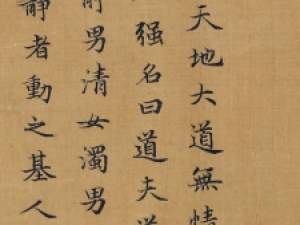 天地大道無情
强名曰道夫道
靜男清女濁男
靜者動之基人